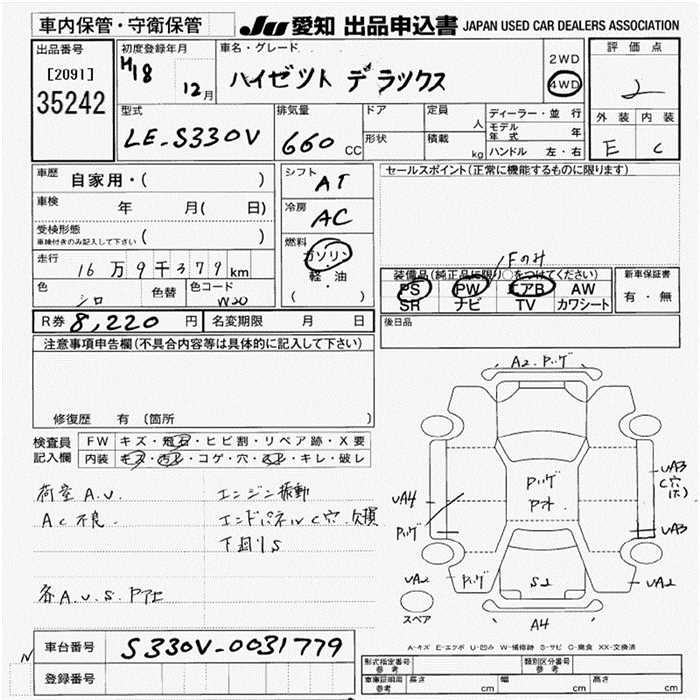 車内保管・守衛保管
JU 愛知 出品申込書 JAPAN USED CAR DEALERS ASSOCIATION
出品番号
[2091]
35242
初度登録年月
H18
12月
車名・グレード
ハイゼット デラックス
2WD
4WD
評価点
2
外装 内装
E C
型式
LE-S330V
排気量
660 CC
ドア
形状
定員
人
積載
kg
ディーラー・並行
モデル年式 年
ハンドル 左・右
車歴 自家用・( )
車検 年 月( 日)
受検形態
車検付きのみ記入して下さい ( )
走行
16万9千379km
色 シロ
色替
色コード W20
シフト AT
冷房 AC
燃料
ガソリン
・
軽・油
( )
セールスポイント(正常に機能するものに限ります)
Fのみ
装備品(純正品に限り○をつけてください)
PS PW エアB AW
SR ナビ TV カワシート
新車保証書
有・無
R券 8,220 円
名変期限 月 日
後日品
注意事項申告欄(不具合内容等は具体的に記入して下さい)
修復歴 有 (箇所 )
検査員
記入欄
FW キズ・飛石・ヒビ割・リペア跡・X要
内装 キズ・汚レ・コゲ・穴・スレ・キレ・破レ
荷室 A.U.
AC不良.
各A.U.S.
エンジン振動
エンドパネルC穴 欠損
下廻りS
A2.
UA3
(穴
UA4
UA3
UA2
S2
UA2
スペア
A4
A-キズ E-エクボ U-凹み W-補修跡 S-サビ C-腐食 XX-交換済
車台番号 S330V-0031779
登録番号
形式指定番号
参考
類別区分番号
参考
車庫証明用
参考
長さ cm
幅 cm
高さ cm